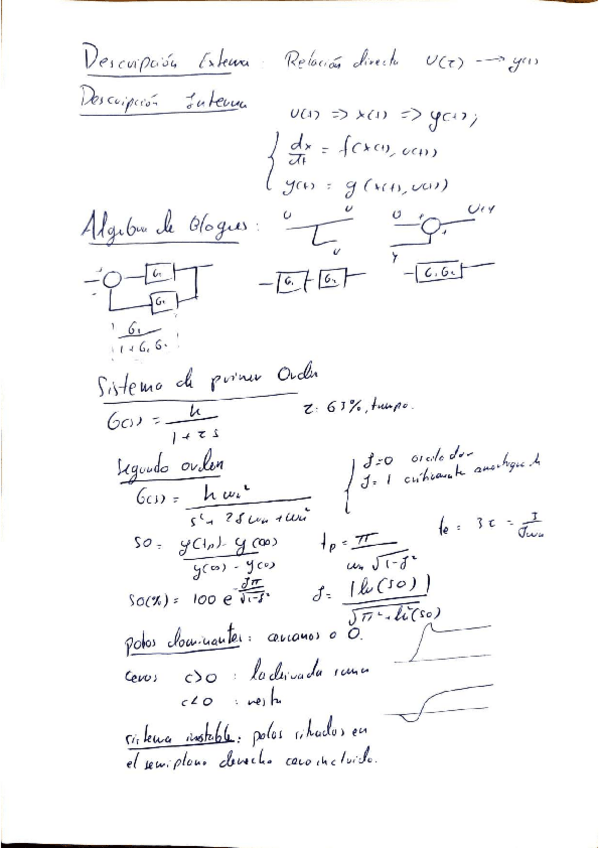 Descripción Externa: Relación directa U(t) → y(t)
Descripción Interna
U(t) => x(t) => y(t);
dx/dt = f(x(t), u(t))
y(t) = g(x(t), u(t))
Algebra de Bloques:
U U U
U U+Y Y
G₁ G₂
G₁ G₂
G₁G₂
G₁ / 1+G₁G₂
Sistema de primer Orden
G(s) = k / 1+τs
τ: 63%, tiempo.
Segundo orden
δ=0 oscilador
δ=1 críticamente amortiguado
G(s) = kωn² / s²+2δωn+ωn²
SO = y(tp) - y(∞) / y(∞) - y(0)
tp = π / ωn√1-δ²
te = 3τ = 3/δωn
SO(%) = 100 e^-δπ/√1-δ²
δ = |ln(SO)| / √π²+ln²(SO)
polos dominantes: cercanos a 0.
Ceros c>0 : la derivada suma
c<0 : resta
sistema inestable: polos situados en
el semiplano derecho cero incluido.